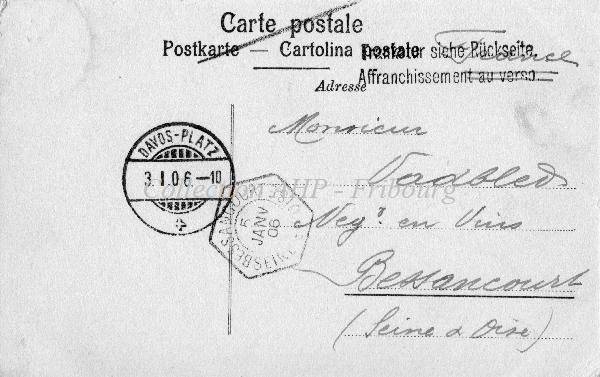 Carte postale
Postkarte — Cartolina postale
Frankatur siehe Rückseite.
Affranchissement au verso.
France
Adresse
Monsieur
Vadbled
Negᵗ en Vins
Bessancourt
(Seine & Oise)
DAVOS-PLATZ
3.I.06.-10
5
JANV
06
Collection AHP - Fribourg